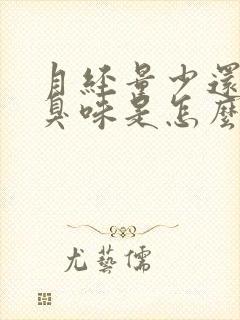 月經量少還
臭味是怎麼
尤藝儒